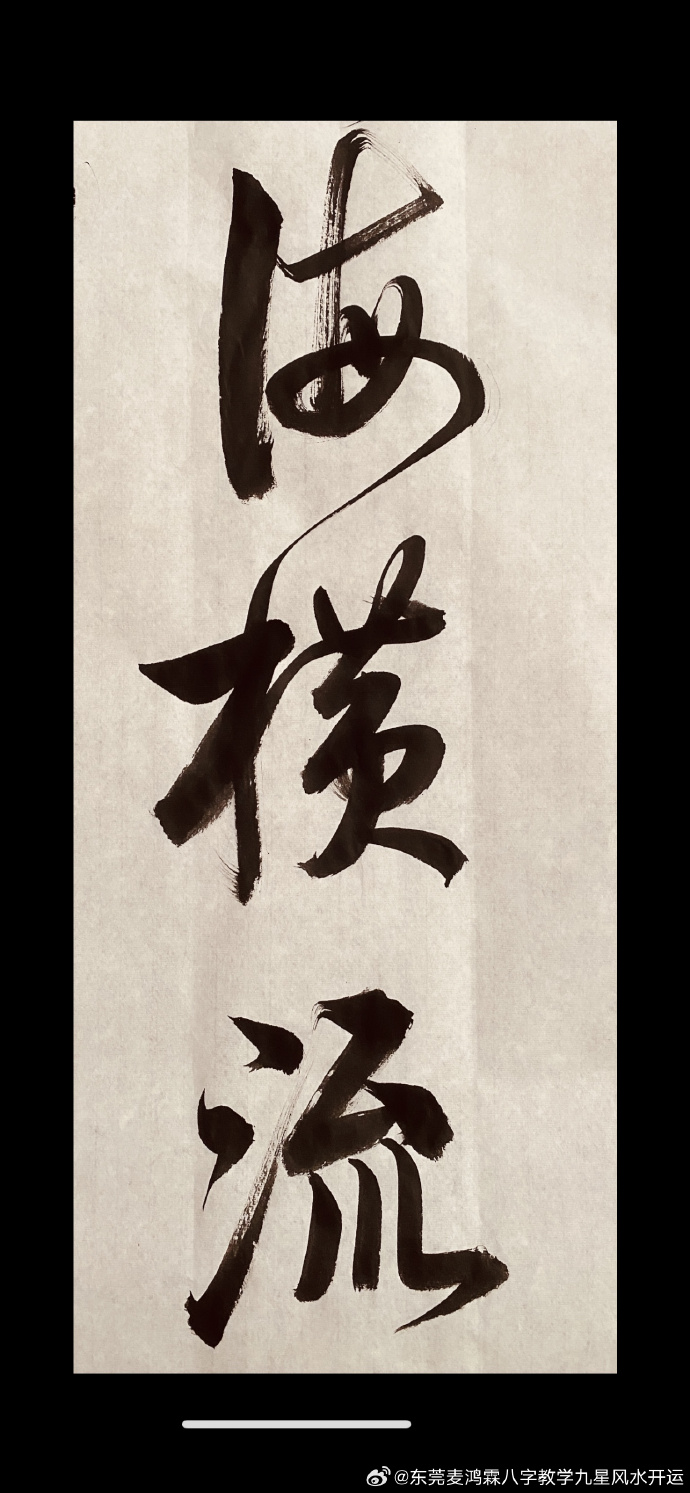 海横流
@东莞麦鸿霖八字教学九星风水开运